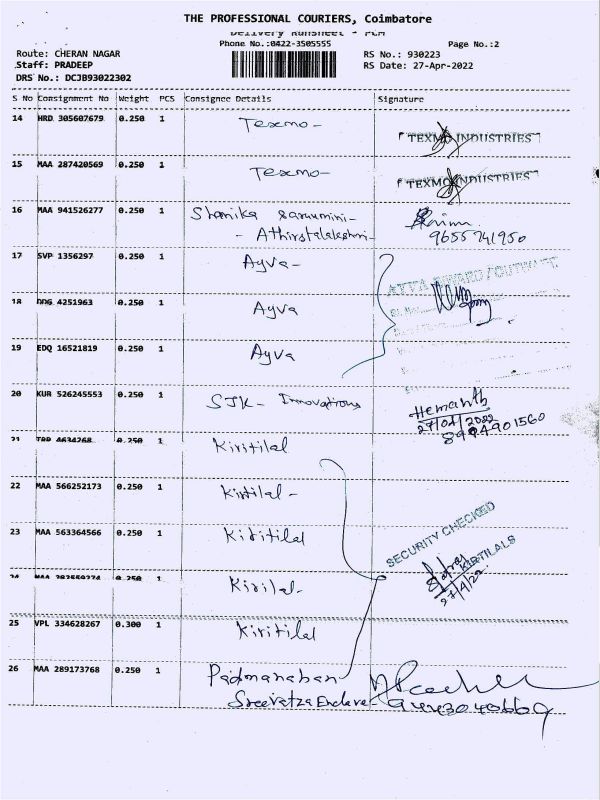 THE PROFESSIONAL COURIERS, Coimbatore
Delivery Runsheet - PCM
Phone No.:0422-3505555
Page No.:2
Route: CHERAN NAGAR
RS No.: 930223
Staff: PRADEEP
RS Date: 27-Apr-2022
DRS No.: DCJB93022302
S No Consignment No Weight PCS Consignee Details Signature
14 HRD 305607679 0.250 1 Texmo-
TEXMO INDUSTRIES
15 MAA 287420569 0.250 1 Texmo-
TEXMO INDUSTRIES
16 MAA 941526277 0.250 1 Shamika
- Athirstalakshmi-
9655741950
17 SVP 1356297 0.250 1 Ayva-
18 DDG 4251963 0.250 1 Ayva
19 EDQ 16521819 0.250 1 Ayva
20 KUR 526245553 0.250 1 SJK- Innovations
Hemanth
27/04/2022
21 4634268 0.250 1 Kiritilal
22 MAA 566252173 0.250 1 Kirtilal-
23 MAA 563364566 0.250 1 Kiritilal
SECURITY CHECKED
KIRTILALS
24 MAA 0.250 1 Kirilal-
27/4/22
25 VPL 334628267 0.300 1 Kiritilal
26 MAA 289173768 0.250 1 Padmanaban
Sreevatza Enclave-